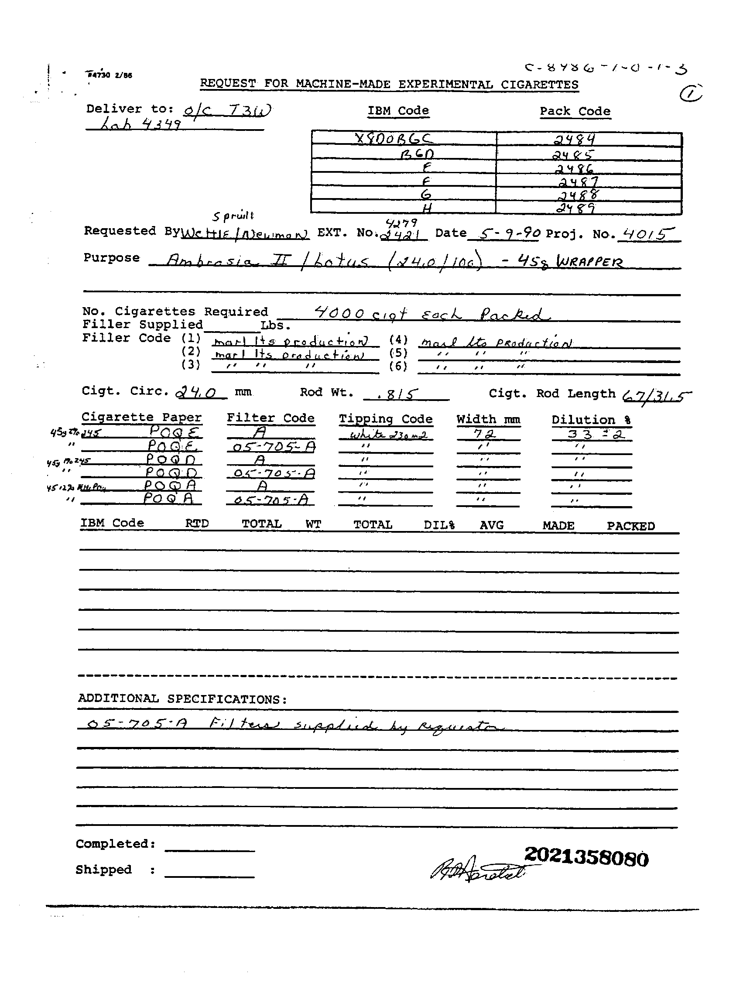 C-8486-1-0-1-3
#4730 2/86
REQUEST FOR MACHINE-MADE EXPERIMENTAL CIGARETTES
1
Deliver to: o/c T3W IBM Code Pack Code
Lab 4349
X9DOBGC 2484
BGD 2485
E 2486
F 2487
G 2488
H 2489
Spruill 4279
Requested By Wettle/Newman EXT. No. 2421 Date 5-9-90 Proj. No. 4015
Purpose Ambrosia II / Lotus (24.0/100) - 45g WRAPPER
No. Cigarettes Required 4000 cigt each Packed
Filler Supplied Lbs.
Filler Code (1) marl lts production (4) marl lts production
(2) marl lts production (5) " " "
(3) " " " (6) " " "
Cigt. Circ. 24.0 mm Rod Wt. .815 Cigt. Rod Length 67/31.5
Cigarette Paper Filter Code Tipping Code Width mm Dilution %
45g 245 POQE A White 230m2 72 33 ± 2
" POQE 05-705-A " " "
45g 245 POQD A " " "
POQD 05-705-A " " "
POQA A " " "
" POQA 05-705-A " " "
IBM Code RTD TOTAL WT TOTAL DIL% AVG MADE PACKED
ADDITIONAL SPECIFICATIONS:
05-705-A Filters supplied by requestor
Completed:
Shipped :
2021358080